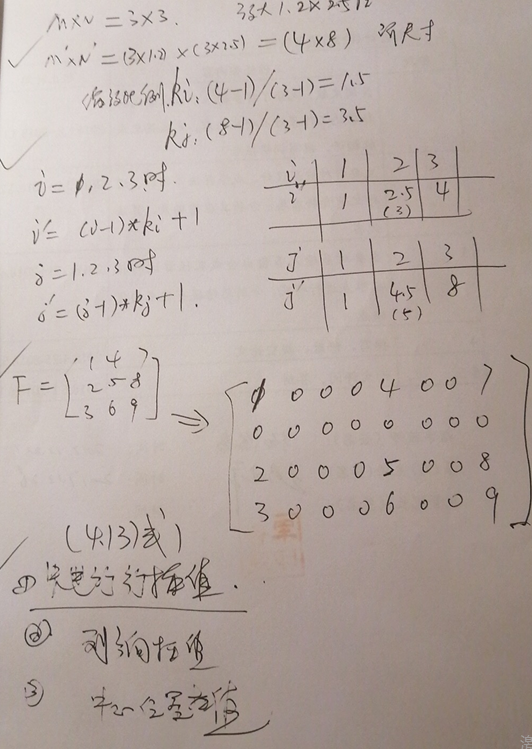 M×N = 3×3. 3×1.2×2.5
M'×N' = (3×1.2)×(3×2.5) = (4×8) 新尺寸
ki: (4-1)/(3-1) = 1.5
kj: (8-1)/(3-1) = 3.5
i = 1, 2, 3时.
i' = (i-1)*ki + 1
j = 1, 2, 3时
j' = (j-1)*kj + 1.
i | 1 | 2 | 3
i' | 1 | 2.5 (3) | 4
j | 1 | 2 | 3
j' | 1 | 4.5 (5) | 8
F = [1 4 7
2 5 8
3 6 9]
⇒
[1 0 0 0 4 0 0 7
0 0 0 0 0 0 0 0
2 0 0 0 5 0 0 8
3 0 0 0 6 0 0 9]
(4.13)式)
① 先进行行插值.
② 列向插值
③ 中心位置插值